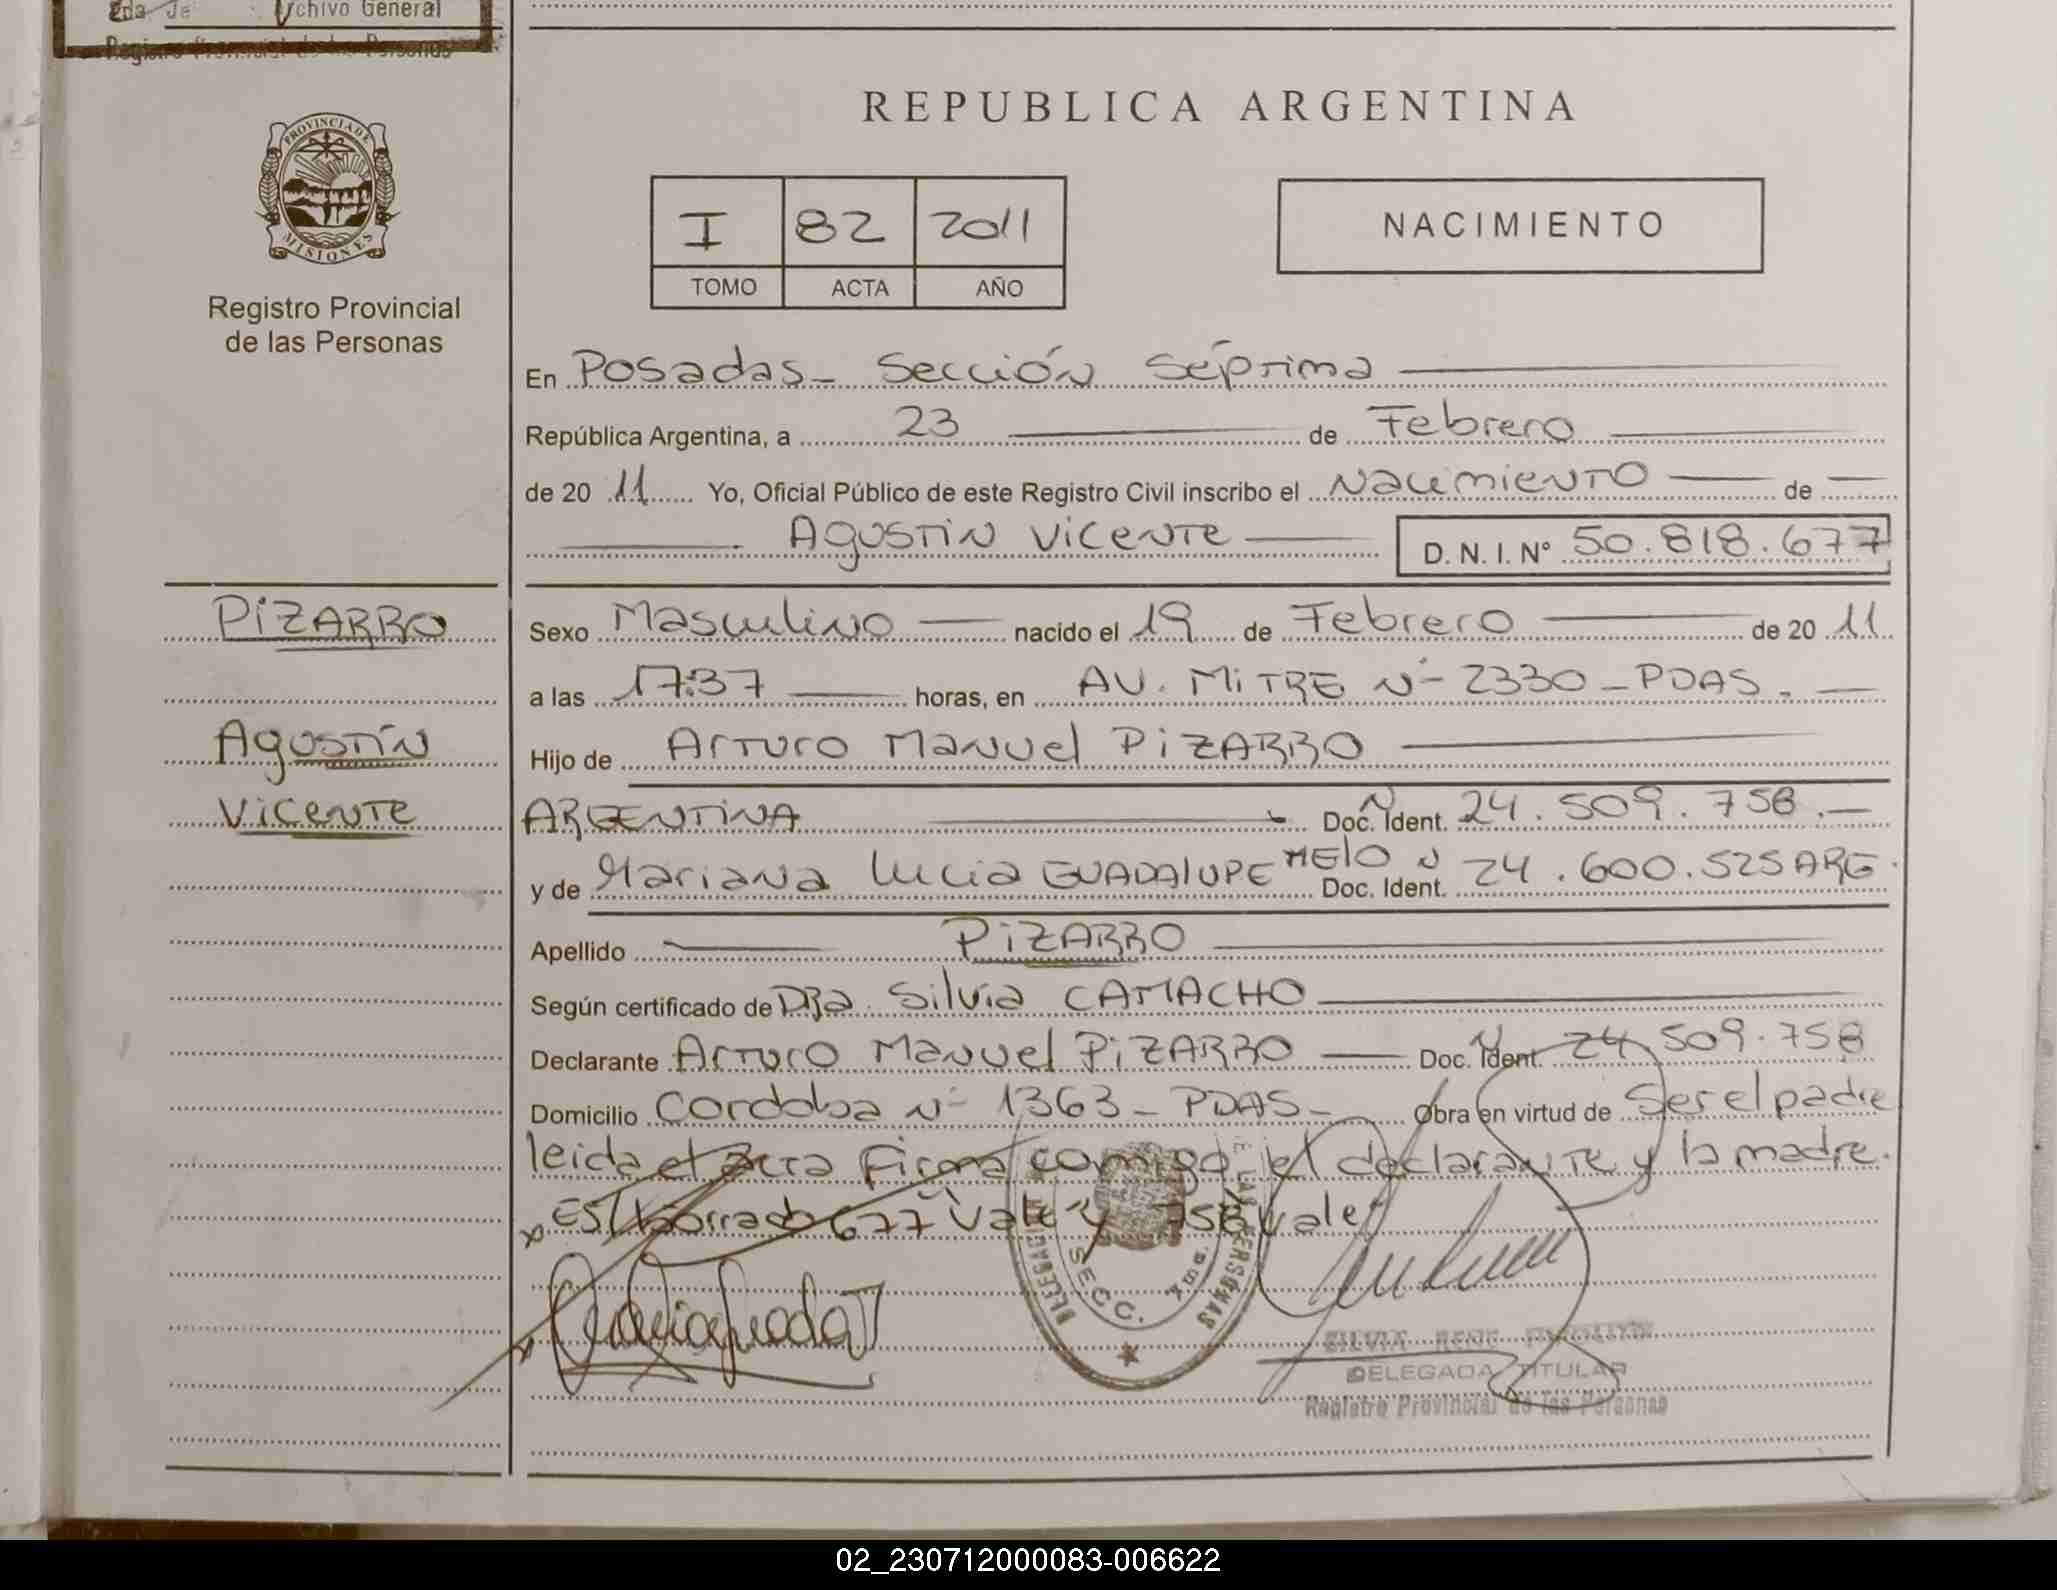 Archivo General
Registro Provincial de las Personas
PROVINCIA DE
MISIONES
Registro Provincial
de las Personas
REPUBLICA ARGENTINA
I 82 2011
TOMO ACTA AÑO
NACIMIENTO
En Posadas - Sección Séptima
República Argentina, a 23 de Febrero
de 20 11 Yo, Oficial Público de este Registro Civil inscribo el Nacimiento de
Agustin Vicente D. N. I. N° 50.818.677
PIZARRO
Agustín
Vicente
Sexo Masculino nacido el 19 de Febrero de 20 11
a las 17:37 horas, en AV. MITRE N- 2330 - PDAS.
Hijo de Arturo Manuel PIZARRO
ARGENTINA Doc. Ident. N 24.509.758.
y de Mariana Lucia GUADALUPE MELO Doc. Ident. N 24.600.525 ARG.
Apellido PIZARRO
Según certificado de DRa. Silvia CAMACHO
Declarante Arturo Manuel PIZARRO Doc. Ident. N 24.509.758
Domicilio Cordoba N- 1363 - PDAS - Obra en virtud de Ser el padre
leida el acta firma conmigo el declarante y la madre.
x ES/ borrado 677 Vale y 758 Vale
DELEGACION
SECC. 7ma.
LAS PERSONAS
SILVIA RENE
DELEGADA TITULAR
Registro Provincial de las Personas
02_230712000083-006622